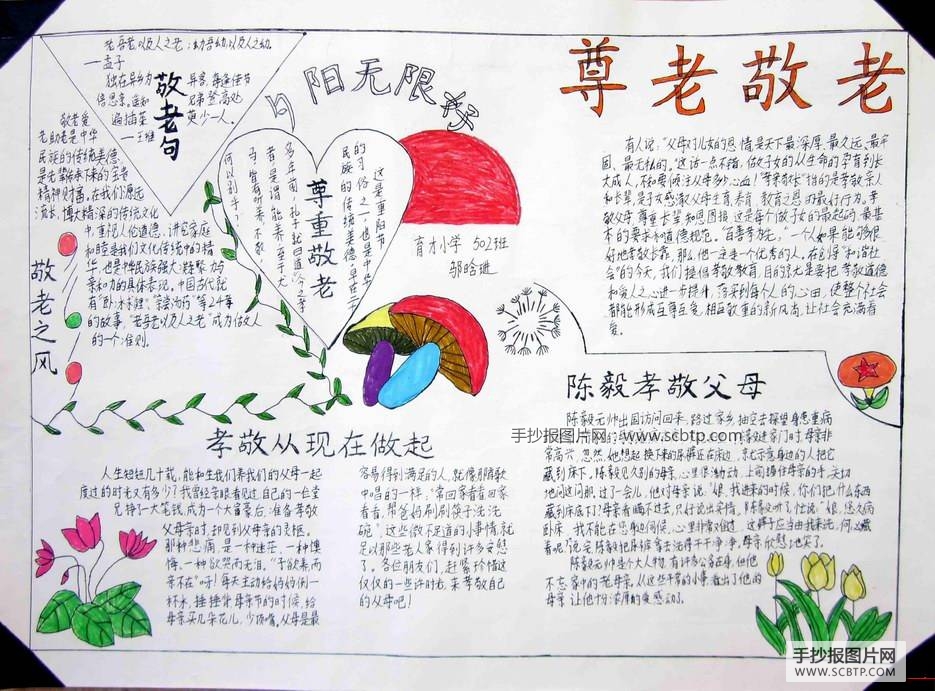 尊老敬老
老吾老,以及人之老;幼吾幼,以及人之幼。
——孟子
敬老句
独在异乡为异客,每逢佳节
倍思亲。遥知兄弟登高处,
遍插茱萸少一人。
——王维
夕阳无限好
敬老爱
老助老是中华
民族的传统美德,
是先辈传承下来的宝贵
精神财富。在我们源远
流长、博大精深的传统文化
中,重视人伦道德、讲究家庭
和睦是我们文化传统中的精
华,也是中华民族强大
亲和力的具体表现,中国古代就
的故事,“老吾老以及人之老”成为做人
的一个准则。
敬老之风
尊重敬老
这是重阳节
的习俗之一,也是中华
民族的传统美德,早在二
多年前,孔子就曰:“今之孝
者,是谓能养。至于犬
马,皆有所养;不敬,
何以别乎?”
育才小学 502班
邬晗琎
有人说:“父母对儿女的恩情是天下最深厚、最久远、最牢
固、最无私的。”这话一点不错,做子女的从生命的孕育到长
大成人,不知要倾注父母多少心血!“尊亲敬长”指的是孝敬亲人
和长辈,是子女感激父母生育、养育、教育之恩的敬行行为。孝
敬父母、尊重长辈、知恩图报,这是每个做子女的最起码、最基
本的要求和道德规范。“百善孝为先”,一个人如果能够很
好地孝敬长辈,那么,他一定是一个优秀的人。在包将“和谐社
会”的今天,我们提倡孝敬教育,目的就是要把孝敬道德
和爱人之心进一步提升,落实到每个人的心田,使整个社会
都能形成互尊互爱、相互敬重的新风尚,让社会充满着
爱。
陈毅孝敬父母
陈毅元帅出国访问回来,路过家乡,抽空去探望身患重病
手抄报图片网:www.scbtp.com
高兴,忽然,她想起换下来的尿裤还在床边,就示意身边的人把它
藏到床下。陈毅见久别的母亲,心里很激动,上前握住母亲的手,关切
地问这问那。过了一会儿,他对母亲说:“娘,我进来的时候,你们把什么东西
藏到床底下了?”母亲看瞒不过去,只好说出实情。陈毅听了,忙说:“娘,您久病
卧床,我不能在您身边伺候,心里非常难过,这裤子应当由我来洗,何必藏
着呢?”说完陈毅把尿裤拿去洗得干干净净,母亲欣慰地笑了。
陈毅元帅是个大人物,有许多公务在身,但他
不忘家中的老母亲,从这些平常的小事,看出了他的
母亲,让他十分浓厚的爱感动了。
孝敬从现在做起
人生短短几十载,能和生我们养我们的父母一起
度过的时光又有多少?我曾经亲眼看见过自己的一位堂
兄挣了大笔钱,成为一个大富豪后,准备孝敬
父母亲时,却见到父母亲的灵柩。
那种悲痛,是一种迷茫,一种懊
悔,一种欲哭而无泪。“子欲养而
亲不在”呀!每天主动给妈妈倒一
杯水,捶捶背,母亲节的时候,给
母亲买几朵花儿,少顶嘴。父母是最
容易得到满足的人,就像那首歌
中唱的一样,“常回家看看回家
看看,帮爸妈刷刷筷子洗洗
碗”,这些微不足道的小事情,就
足以那些老人家得到许多安慰
了。各位朋友们,赶紧珍惜这
仅仅的一些许时光,来孝敬自己
的父母吧!
手抄报图片网
WWW.SCBTP.COM